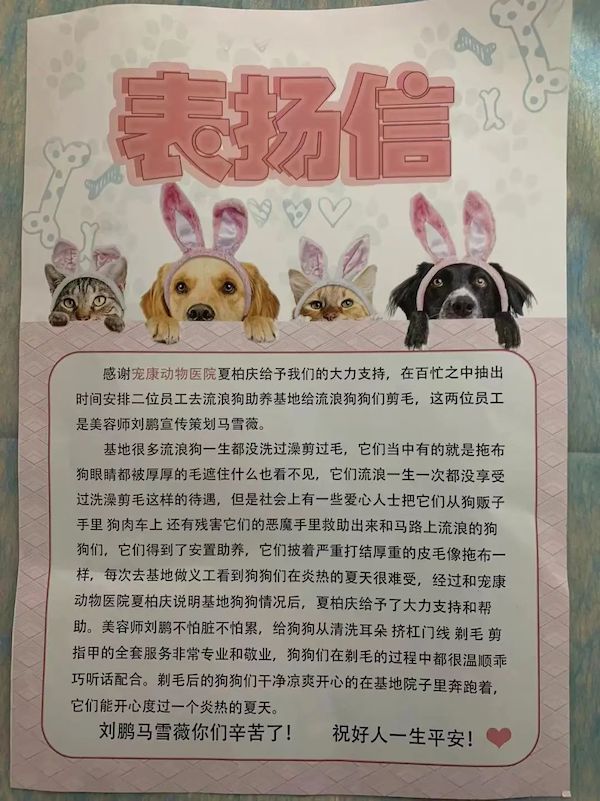 表扬信
感谢宠康动物医院夏柏庆给予我们的大力支持，在百忙之中抽出
时间安排二位员工去流浪狗助养基地给流浪狗狗们剪毛，这两位员工
是美容师刘鹏宣传策划马雪薇。
基地很多流浪狗一生都没洗过澡剪过毛，它们当中有的就是拖布
狗眼睛都被厚厚的毛遮住什么也看不见，它们流浪一生一次都没享受
过洗澡剪毛这样的待遇，但是社会上有一些爱心人士把它们从狗贩子
手里 狗肉车上 还有残害它们的恶魔手里救助出来和马路上流浪的狗
狗们，它们得到了安置助养，它们披着严重打结厚重的皮毛像拖布一
样，每次去基地做义工看到狗狗们在炎热的夏天很难受，经过和宠康
动物医院夏柏庆说明基地狗狗情况后，夏柏庆给予了大力支持和帮
助。美容师刘鹏不怕脏不怕累，给狗狗从清洗耳朵 挤肛门线 剃毛 剪
指甲的全套服务非常专业和敬业，狗狗们在剃毛的过程中都很温顺乖
巧听话配合。剃毛后的狗狗们干净凉爽开心的在基地院子里奔跑着，
它们能开心度过一个炎热的夏天。
刘鹏马雪薇你们辛苦了！ 祝好人一生平安！